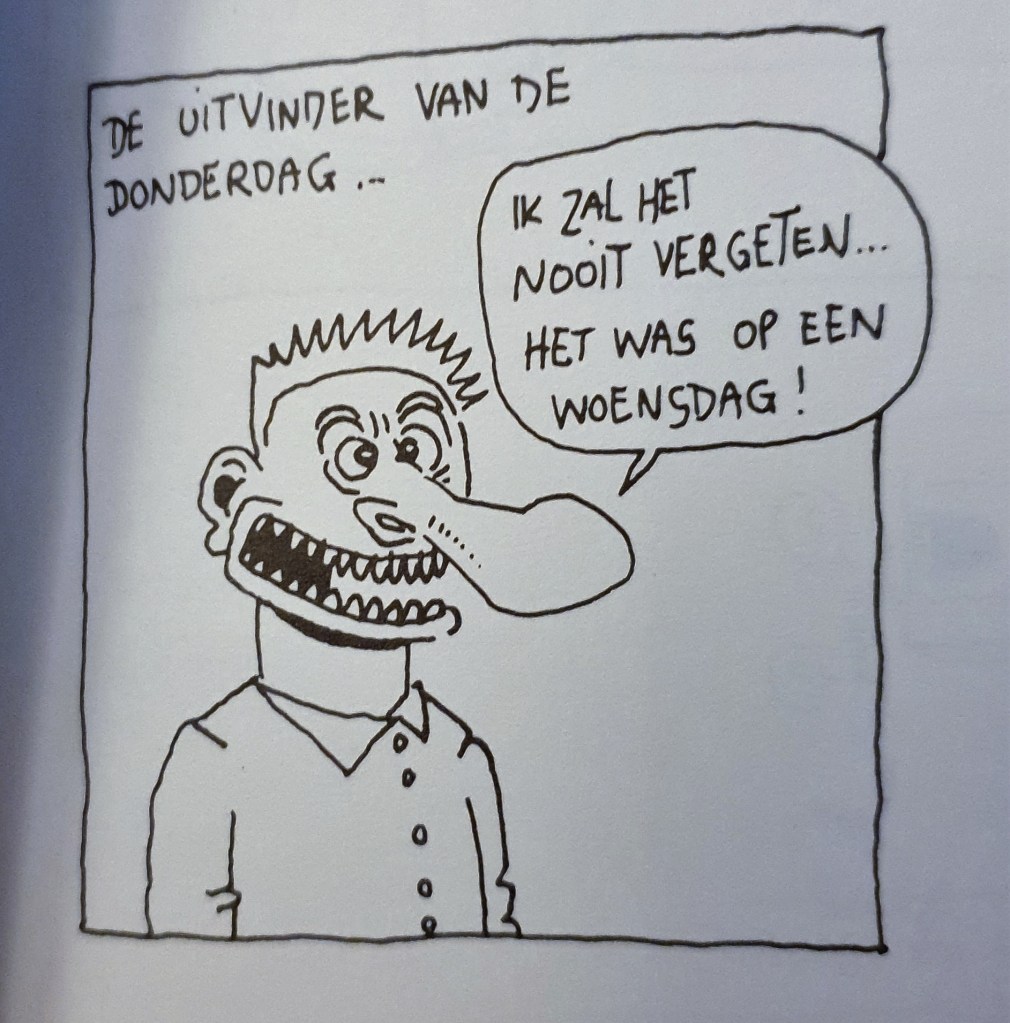 DE UITVINDER VAN DE
DONDERDAG...
IK ZAL HET
NOOIT VERGETEN...
HET WAS OP EEN
WOENSDAG!